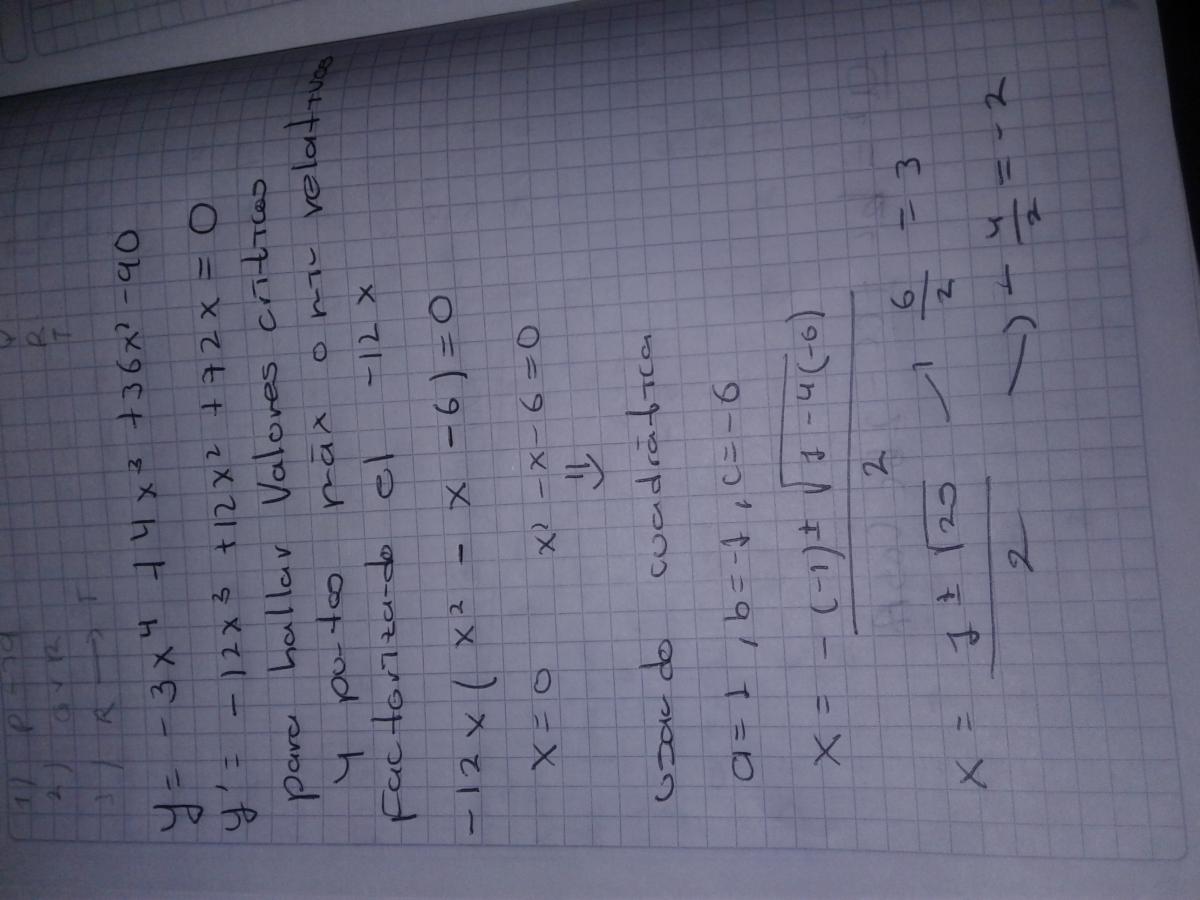 y = -3x⁴ + 4x³ + 36x² - 90
y' = -12x³ + 12x² + 72x = 0
para hallar Valores críticos
y puntos máx o min relativos
Factorizando el -12x
-12x(x² - x - 6) = 0
x = 0 x² - x - 6 = 0
⇓
usando cuadrática
a = 1, b = -1, c = -6
x = -(-1) ± √1 - 4(-6) / 2
x = 1 ± √25 / 2
6/2 = 3
4/2 = -2